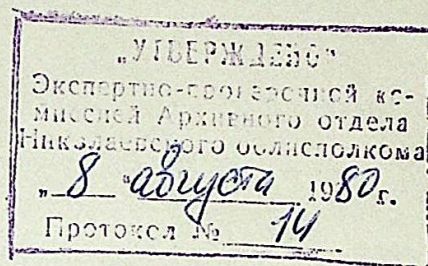 „УТВЕРЖДЕНО"
Экспертно-проверочной ко-
миссией Архивного отдела
Николаевского облисполкома
„8" августа 1980 г.
Протокол № 14